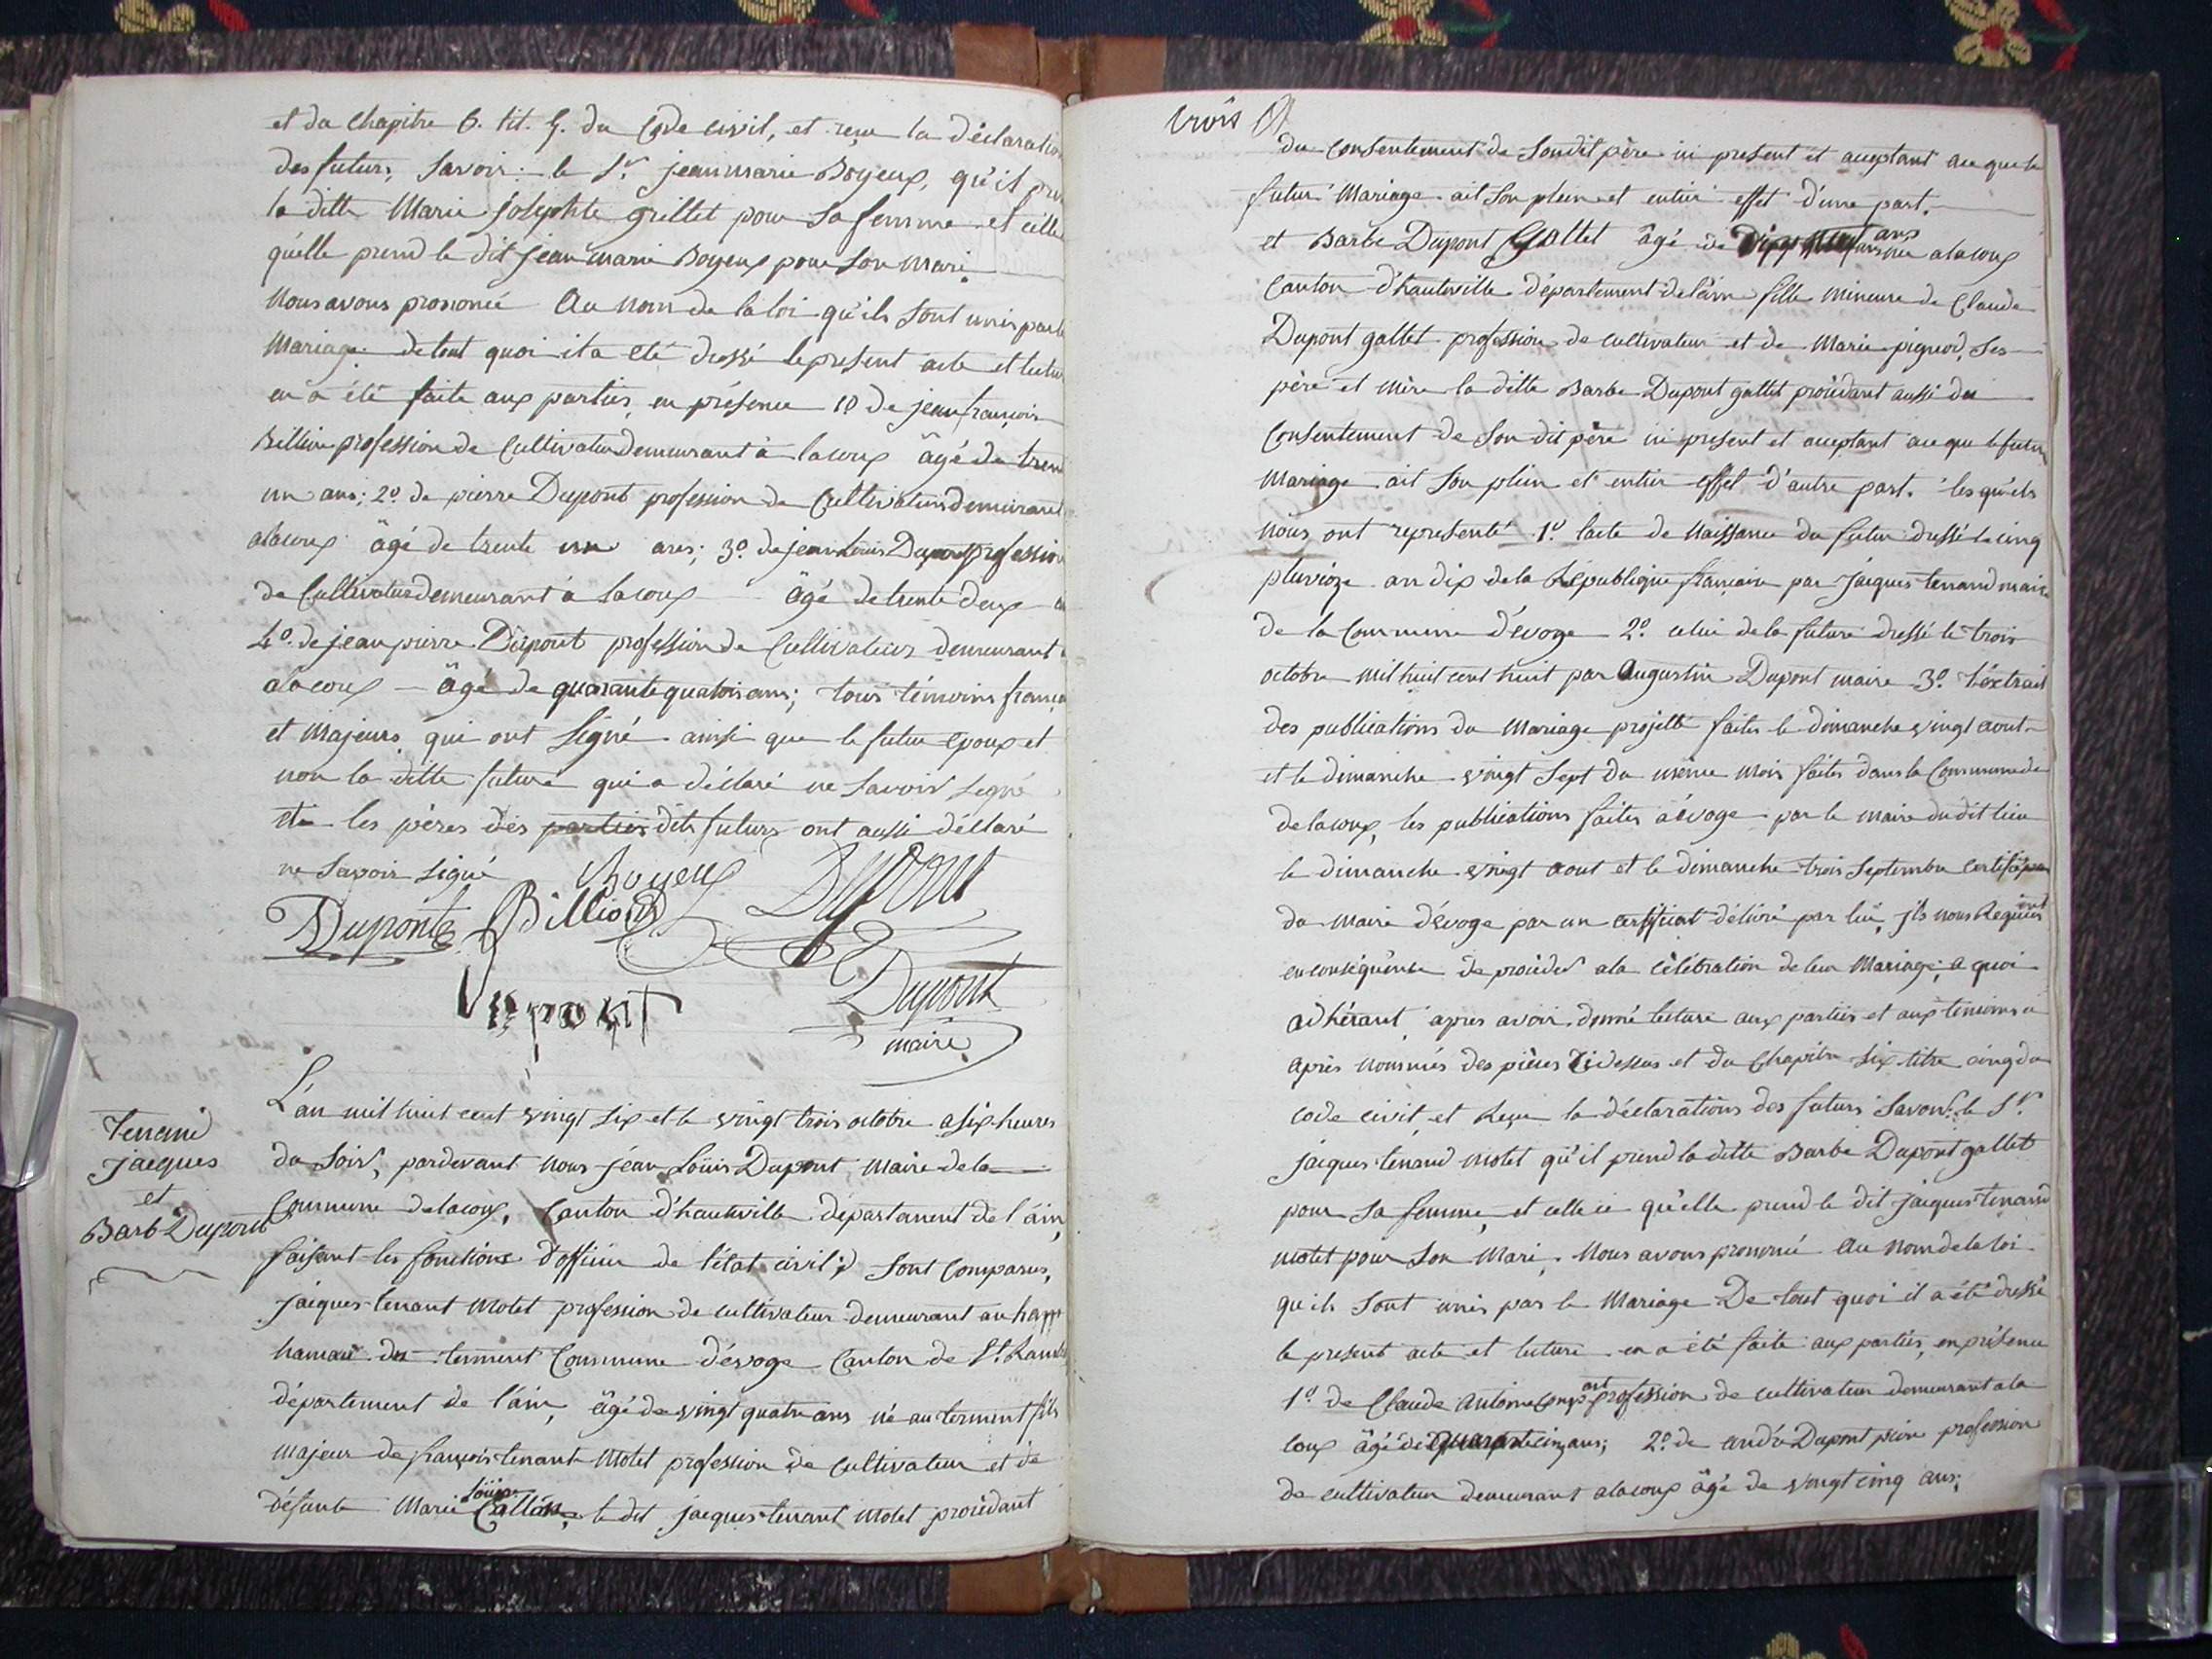 et du Chapitre 6. tit. 5. du Code civil, et reçu la déclaration
des futurs, Savoir: le Sr. jean marie Boyeux, qu'il
la ditte Marie josephte Grillet pour Sa femme et celle
qu'elle prend le dit jean marie Boyeux pour Son Mari
Nous avons prononcé Au Nom de la loi qu'ils Sont unis par le
Mariage. de tout quoi il a été dressé le present acte et lectur
en a été faite aux parties, en présence 1º de jean françois
Billion profession de Cultivateur demeurant à lacoux âgé de tren
un ans; 2º de pierre Dupont profession de Cultivateur demeurant
alacoux âgé de trente un ans; 3º de jean louis Dupont profession
de Cultivateur demeurant à Lacoux âgé de trente deux
4º. de jean pierre Dupont profession de Cultivateur demeurant
alacoux âgé de quarante quatre ans; tous témoins frança
et Majeurs qui ont Signé ainsi que le futur Epoux et
non la ditte future qui a déclaré ne Savoir Signé
les pères des parties dits futurs ont aussi déclaré
ne Savoir Signé Boyeux Dupont
Dupont Billion
Dupont Dupont
maire
Tenand
jacques
et
Barb Dupont
L'an mil huit cent vingt Six et le vingt trois octobre a six heures
du Soir, pardevant Nous jean Loüis Dupont, Maire de la
Commune de lacoux, Canton d'hauteville département de l'ain,
faisant les fonctions d'officier de l'état civil; Sont Comparus,
jacques tenant Motet profession de cultivateur demeurant au
hameau du terment Commune d'Evoge Canton de St. Rambt
département de l'ain, âgé de vingt quatre ans né au terment fils
majeur de françois tenant Motet profession de Cultivateur et de
défunte Marie Loüise Callion, le dit jacques tenant Motet procédant
trois
du consentement de Sondit père ici present et acceptant ace que le
futur Mariage ait Son plein et entier effet d'une part.
et Barbe Dupont Gallet âgé de ans née alacoux
Canton d'hauteville département de l'ain fille Mineure de Claude
Dupont gallet profession de cultivateur et de Marie pignod, Ses
père et Mère la ditte Barbe Dupont gallet procédant aussi du
Consentement de Son dit père ici present et acceptant ace que le futur
Mariage ait Son plein et entier effet d'autre part. lesquels
Nous ont representé 1º. l'acte de Naissance du futur dressé le cinq
pluvioze an dix de la République française par jacques tenand maire
de la Commune d'Evoge 2º. celui de la future dressé le trois
octobre mil huit cent huit par Augustin Dupont maire 3º. l'extrait
des publications du Mariage projetté faites le dimanche vingt aout
et le dimanche vingt Sept du même Mois faites dans la Commune de
de lacoux, les publications faites à Evoge par le maire dudit lieu
le dimanche vingt aout et le dimanche trois Septembre
du maire d'Evoge par un certificat délivré par lui, ils nous Requierent
enconséquence de procéder ala Célébration de leur Mariage; a quoi
adhérant après avoir donné lecture aux parties et aux temoins ci
après Nommés des pièces Cidessus et du Chapitre Six titre cinq du
code civil, et Reçu la déclarations des futurs Savoir: le Sr.
jacques tenand Motet qu'il prend la ditte Barbe Dupont gallet
pour Sa femme, et celle ci qu'elle prend le dit jacques tenand
Motet pour Son Mari, Nous avons prononcé Au Nom de la loi
qu'ils Sont unis par le Mariage De tout quoi il a été dressé
le present acte et lecture en a été faite aux parties, en présence
1º. de Claude Antoine profession de cultivateur demeurant ala
coux âgé de quarante cinq ans; 2º. de andré Dupont profession
de cultivateur demeurant alacoux âgé de vingt cinq ans;